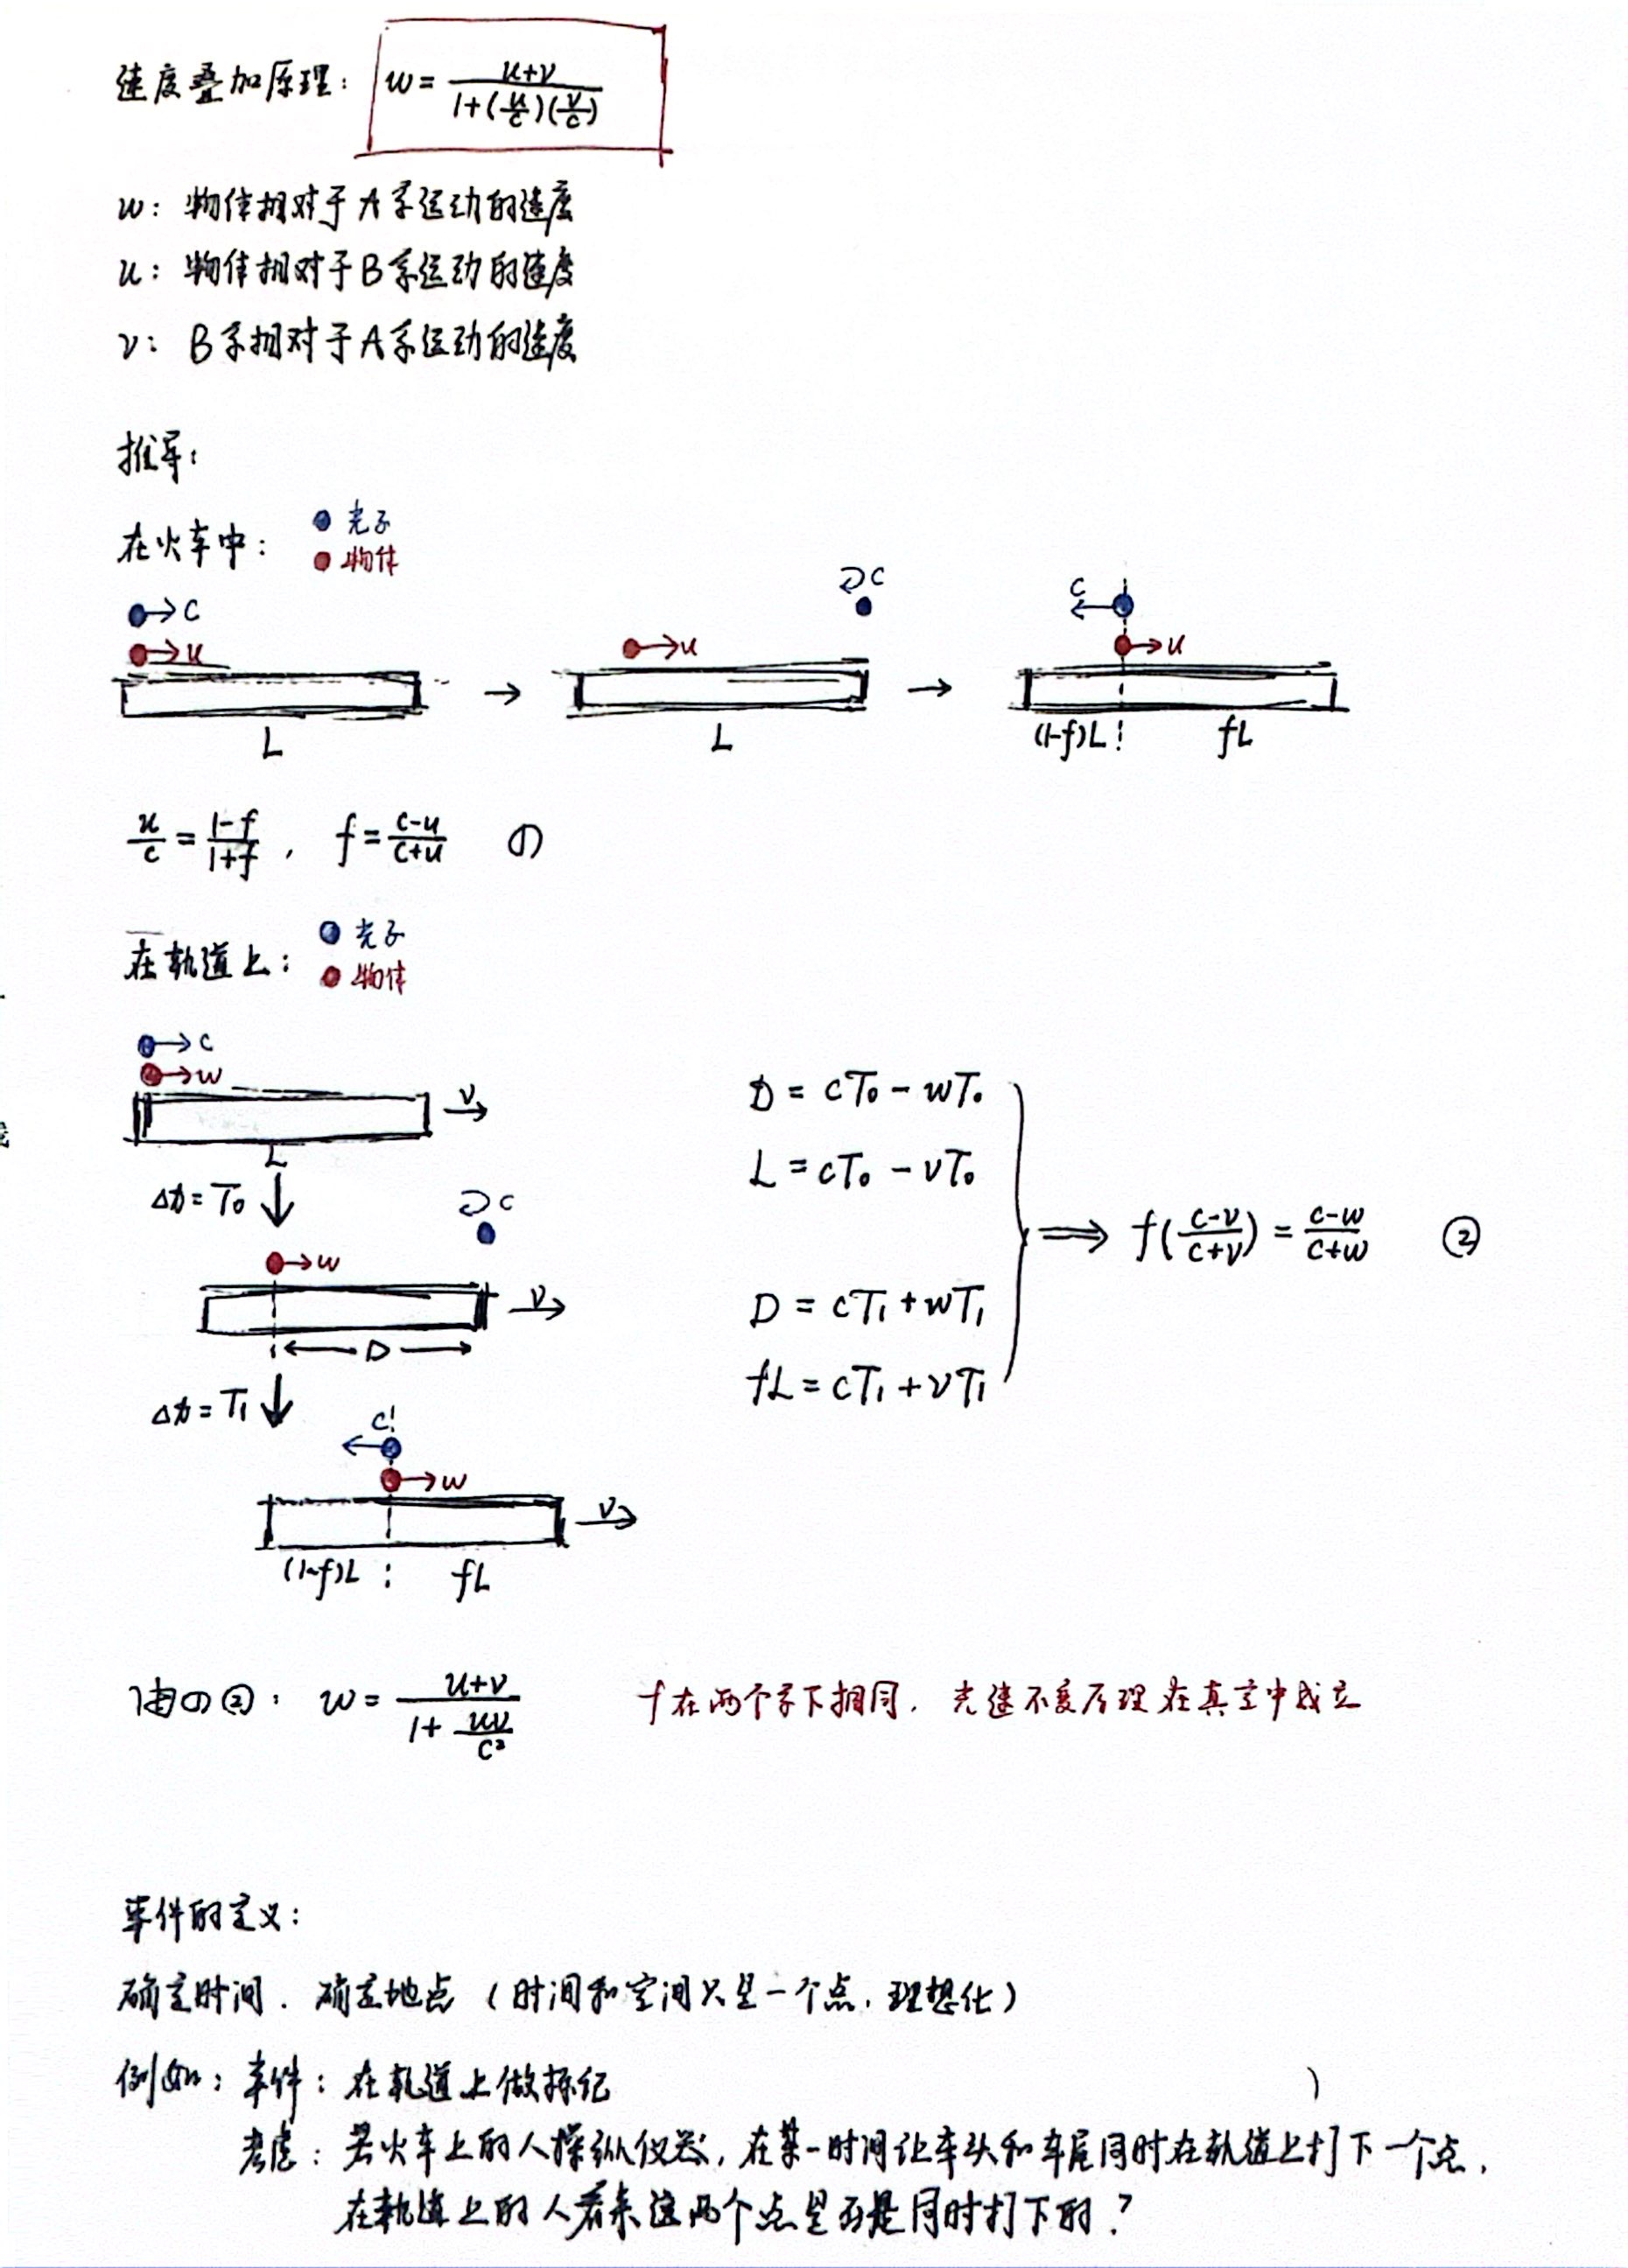 速度叠加原理: w = (u+v)/(1+(u/c)(v/c))
w: 物体相对于A系运动的速度
u: 物体相对于B系运动的速度
v: B系相对于A系运动的速度
推导:
在火车中: 光子
物体
c
u
L
→
u
c
L
→
c
u
(1-f)L fL
u/c = (1-f)/(1+f), f = (c-u)/(c+u) ①
在轨道上: 光子
物体
c
w
v
L
Δt = T₀
c
w
v
D
Δt = T₁
c
w
v
(1-f)L fL
D = cT₀ - wT₀
L = cT₀ - vT₀
D = cT₁ + wT₁
fL = cT₁ + vT₁
⟹ f((c-v)/(c+v)) = (c-w)/(c+w) ②
由①②: w = (u+v)/(1+uv/c²) f在两个系下相同, 光速不变原理在真空中成立
事件的定义:
确定时间. 确定地点 (时间和空间只是一个点, 理想化)
例如: 事件: 在轨道上做标记
考虑: 若火车上的人操纵仪器, 在某一时间让车头和车尾同时在轨道上打下一个点,
在轨道上的人看来这两个点是否是同时打下的?